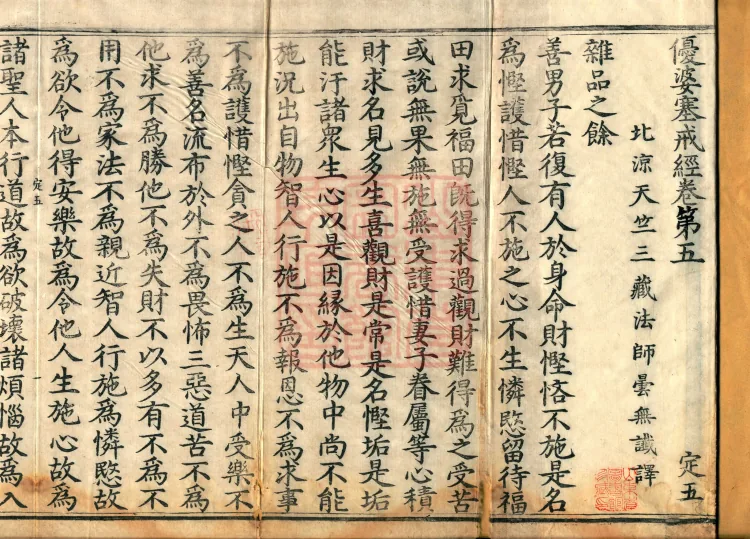 優婆塞戒經卷第五 定五
北涼天竺三藏法師曇無讖譯
雜品之餘
善男子若復有人於身命財慳悋不施是名
為慳護惜慳人不施之心不生憐愍留待福
田求覓福田旣得求過觀財難得為之受苦
或說無果無施無受護惜妻子眷屬等心積
財求名見多生喜觀財是常是名慳垢是垢
能汙諸衆生心以是因緣於他物中尚不能
施況出自物智人行施不為報恩不為求事
不為護惜慳貪之人不為生天人中受樂不
為善名流布於外不為畏怖三惡道苦不為
他求不為勝他不為失財不以多有不為不
用不為家法不為親近智人行施為憐愍故
為欲令他得安樂故為令他人生施心故為
定五 一
諸聖人本行道故為欲破壞諸煩惱故為入